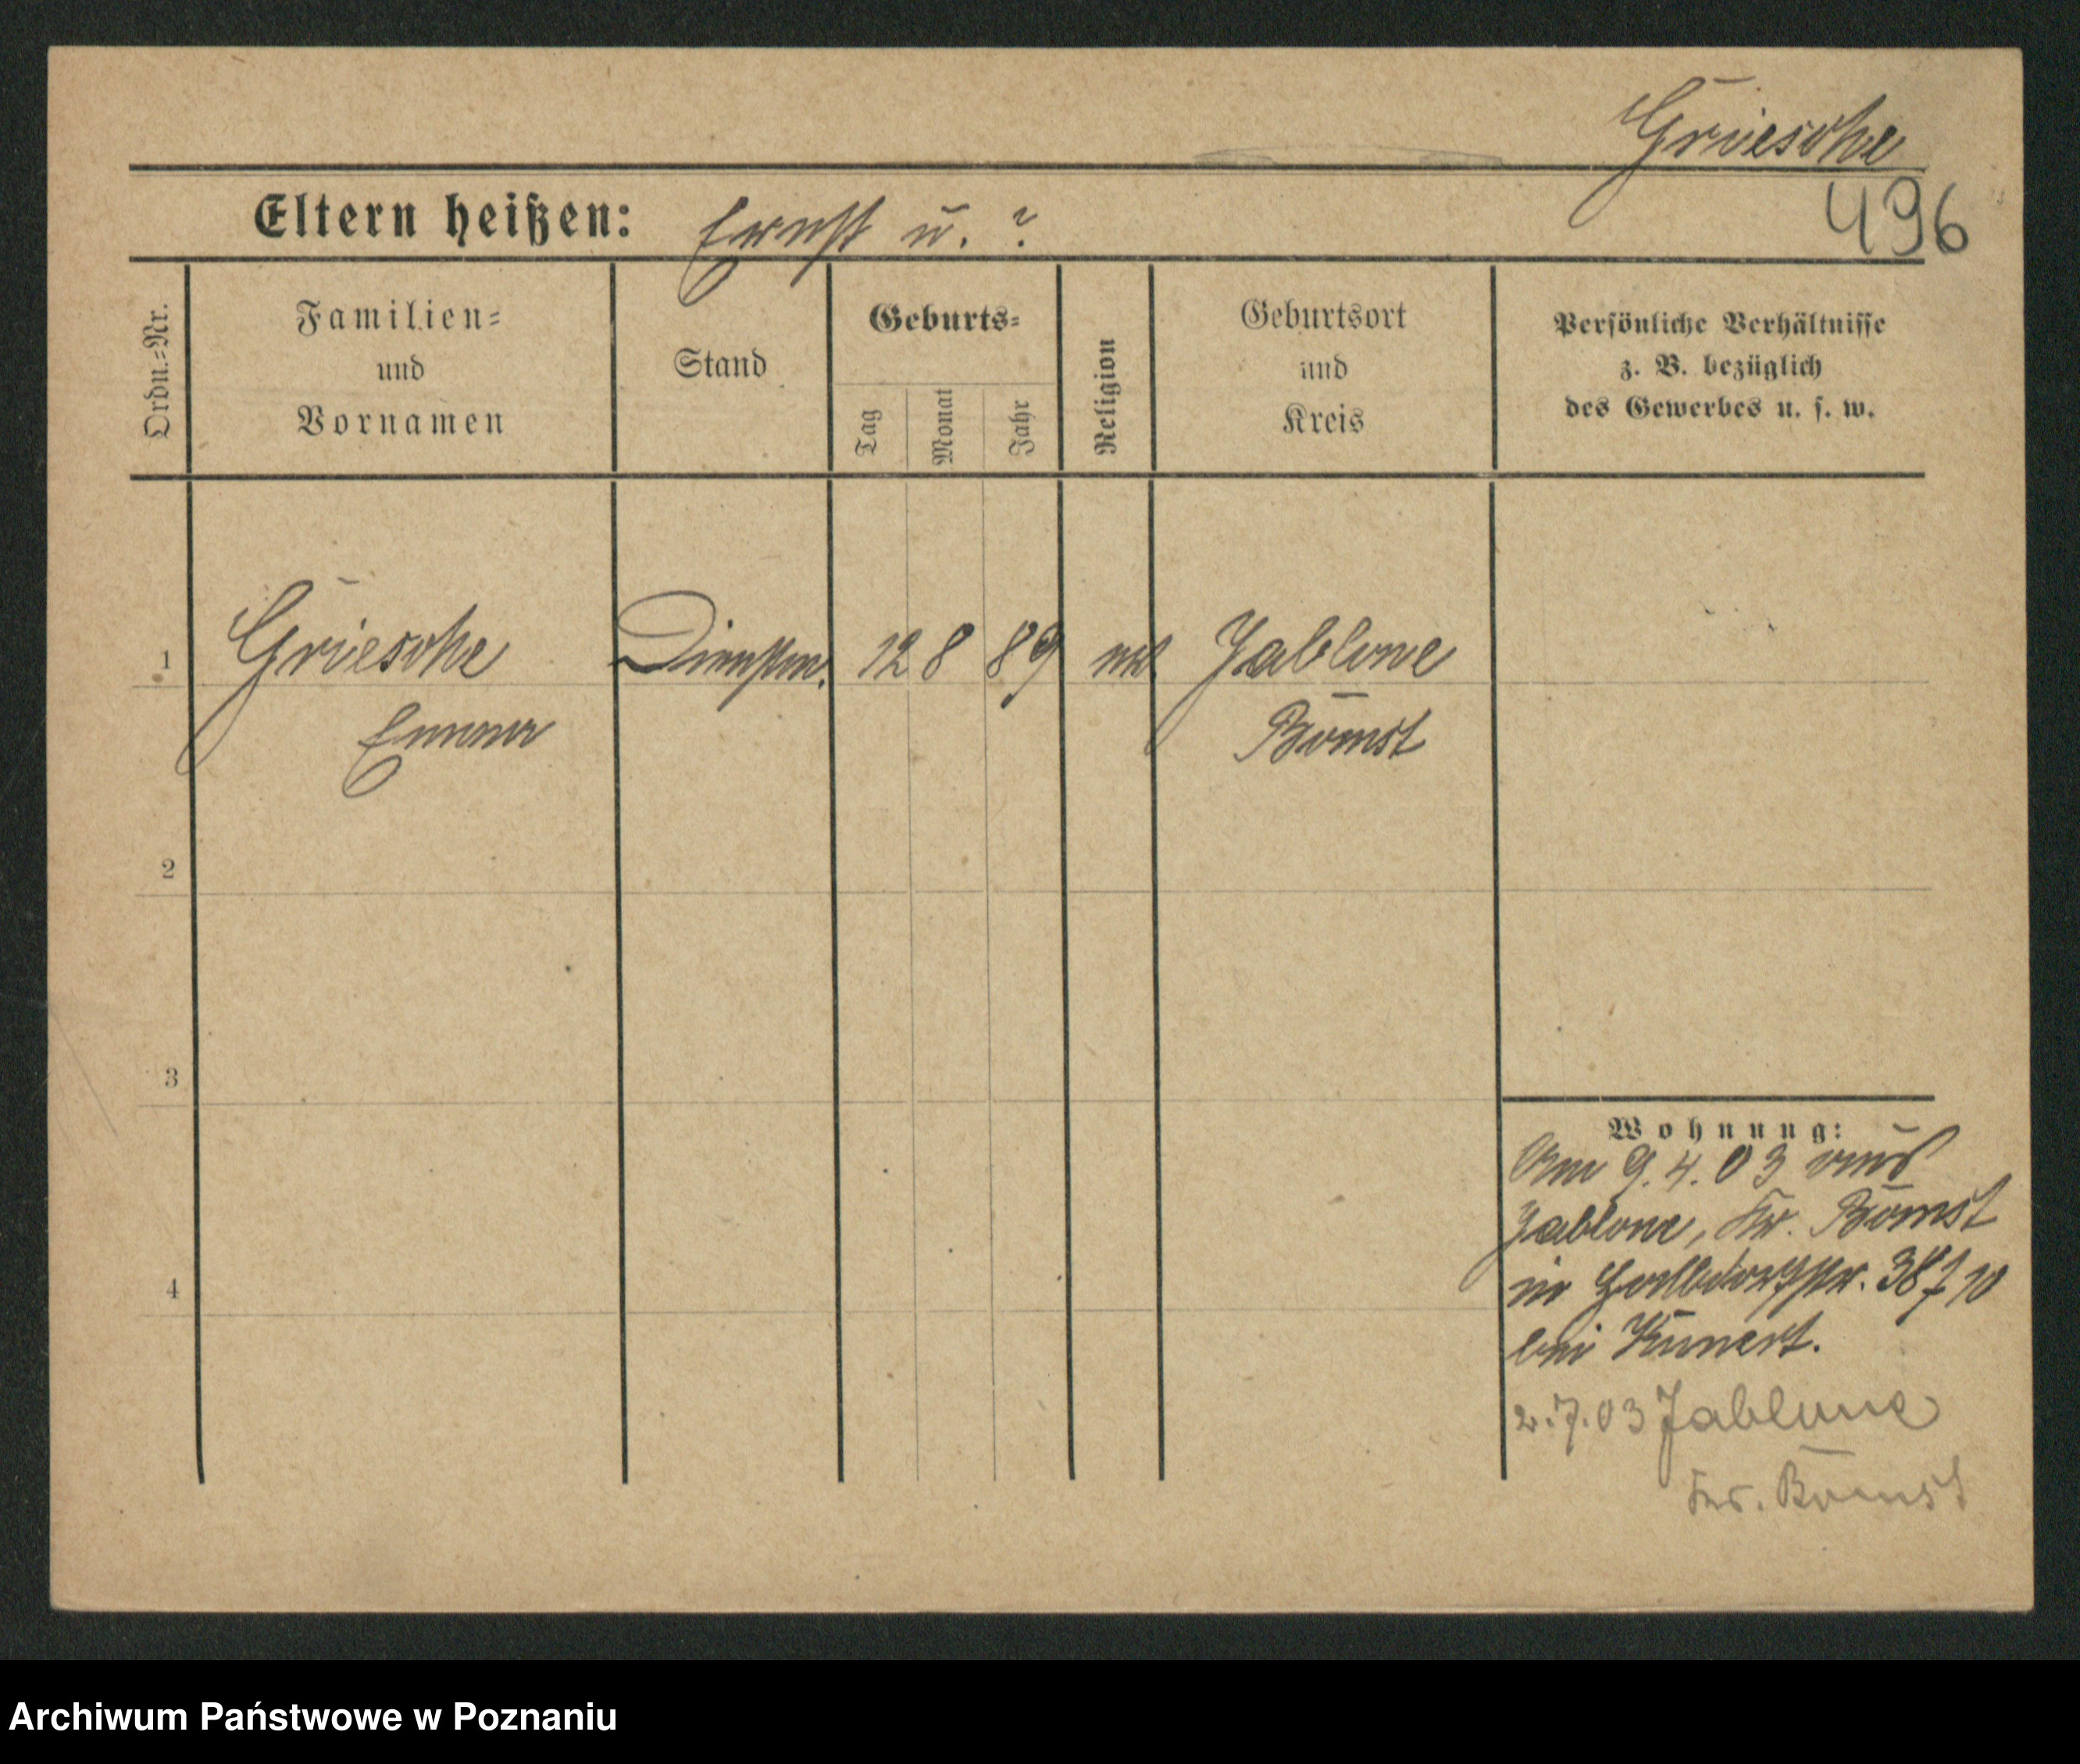 Griesche
496
Eltern heißen: Ernst u. ?
Ordn.=Nr.
Familien=
und
Vornamen
Stand
Geburts=
Tag
Monat
Jahr
Religion
Geburtsort
und
Kreis
Persönliche Verhältnisse
z. B. bezüglich
des Gewerbes u. s. w.
1 Griesche Dienstm. 12 8 89 Jablone
Emma Bomst
2
3
4
Wohnung:
Am 9.4.03 aus
Jablone, Kr. Bomst
in 38
bei Kunert.
2.7.03 Jablone
Kr. Bomst
Archiwum Państwowe w Poznaniu